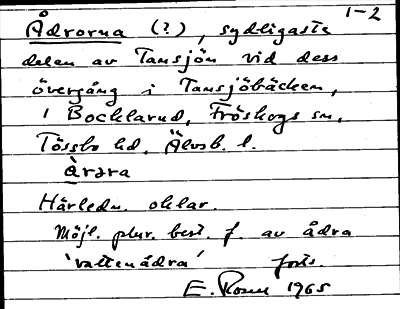 1-2
Ådrorna (?), sydligaste
delen av Tansjön vid dess
övergång i Tansjöbäcken,
i Bocklarud, Fröskogs sn,
Tössbo hd, Älvsb. l.
Härledn. oklar.
Möjl. plur. best. f. av ådra
'vattenådra' forts.
E. Rosell 1965